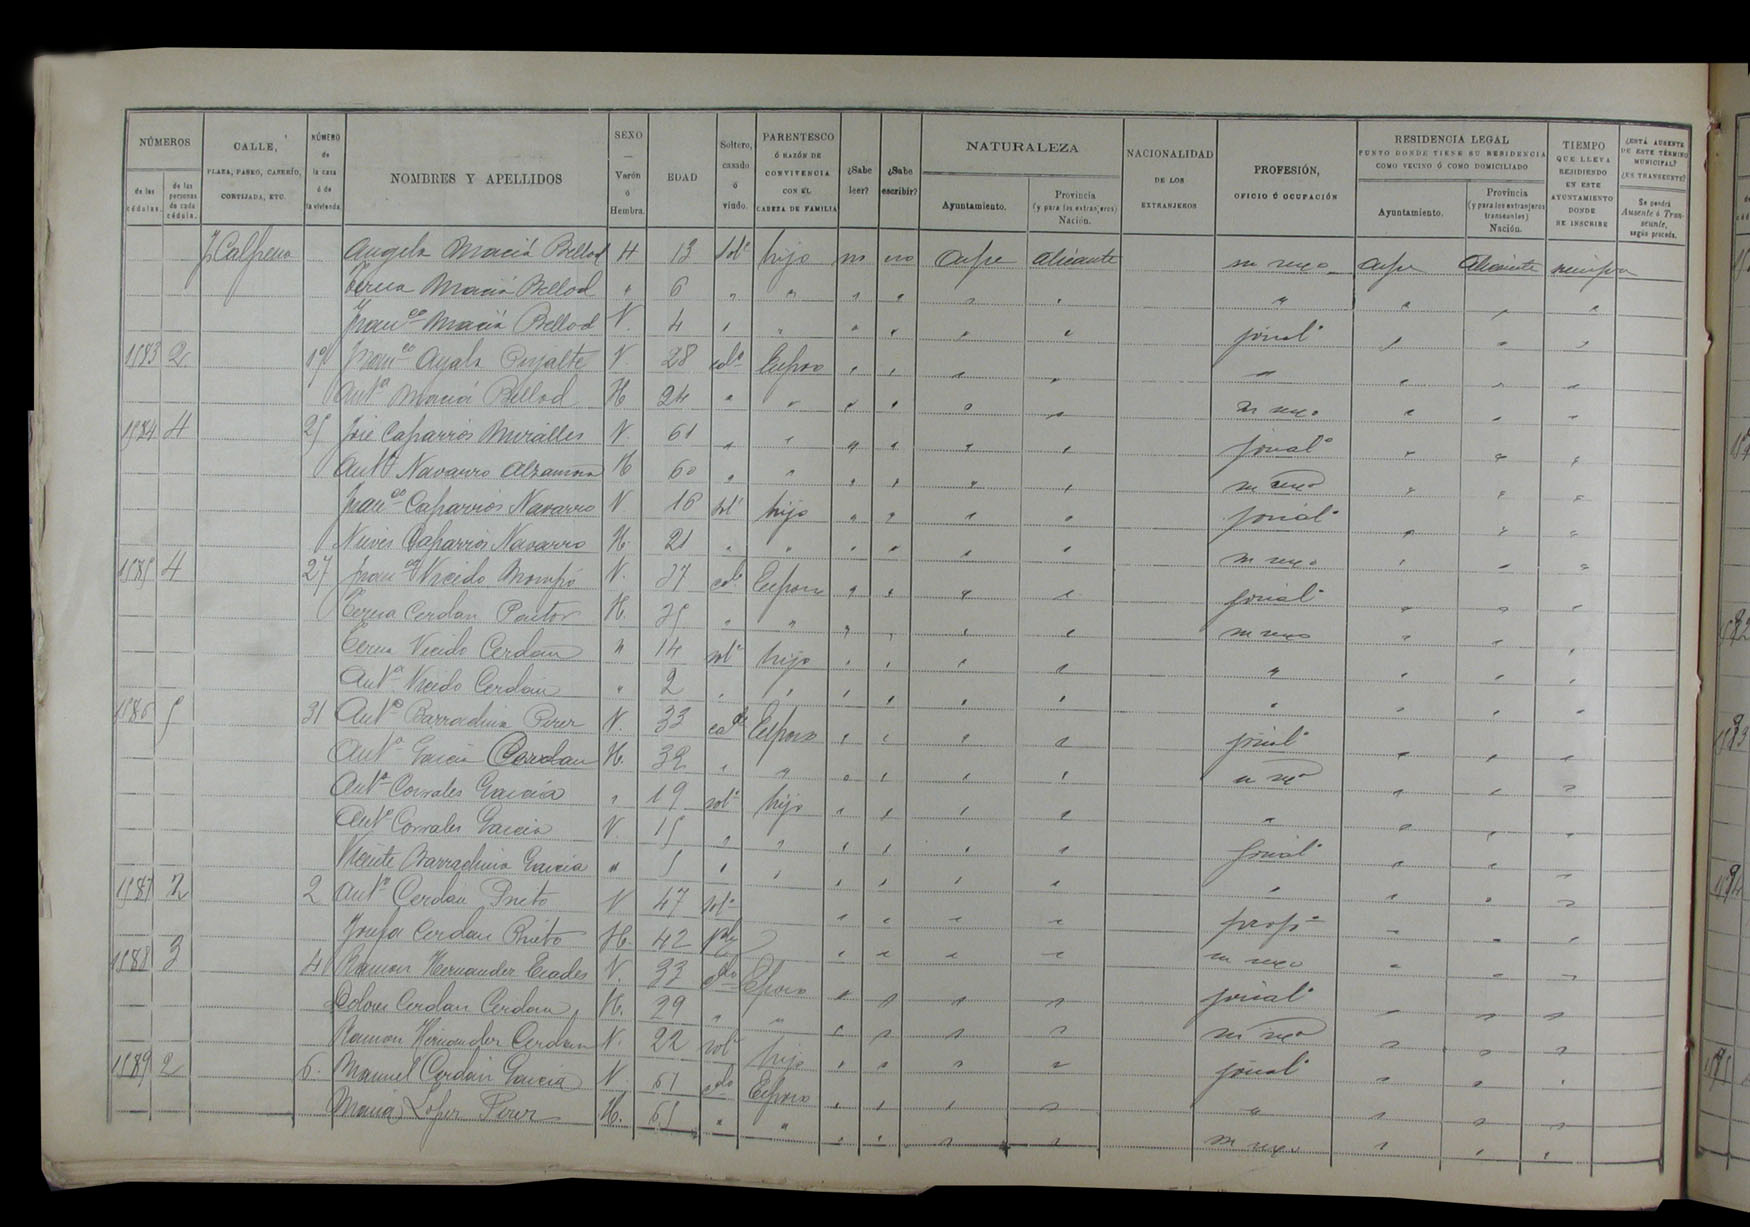 NÚMEROS
de las cédulas.
de las personas de cada cédula.
CALLE,
PLAZA, PASEO, CASERÍO,
CORTIJADA, ETC.
NÚMERO
de
la casa
ó de
la vivienda.
NOMBRES Y APELLIDOS
SEXO
—
Varón
ó
Hembra.
EDAD
Soltero,
casado
ó
viudo.
PARENTESCO
Ó RAZÓN DE
CONVIVENCIA
CON EL
CABEZA DE FAMILIA
¿Sabe
leer?
¿Sabe
escribir?
NATURALEZA
Ayuntamiento.
Provincia
(y para los extranjeros)
Nación.
NACIONALIDAD
DE LOS
EXTRANJEROS
PROFESIÓN,
OFICIO Ó OCUPACIÓN
RESIDENCIA LEGAL
PUNTO DONDE TIENE SU RESIDENCIA
COMO VECINO Ó COMO DOMICILIADO
Ayuntamiento.
Provincia
(y para los extranjeros
transeuntes)
Nación.
TIEMPO
QUE LLEVA
RESIDIENDO
EN ESTE
AYUNTAMIENTO
DONDE
SE INSCRIBE
¿ESTÁ AUSENTE
DE ESTE TÉRMINO
MUNICIPAL?
¿ES TRANSEUNTE?
Se pondrá
Ausente ó Tran-
seunte,
según proceda.
Angela Maciá Bellod H 13 solª hijo no no Aspe Alicante su sexo Aspe Alicante siempre
Teresa Maciá Bellod " 6 " " " " " " " " " "
Franco Maciá Bellod V. 4 " " " " " " jornalº " " "
1583 2 Franco Ayala V 28 Esposo " " " " " " " "
Antª Maciá Bellod H 24 " " " " " " su sexo " " "
1584 4 25 José Caparrós Miralles V. 61 " " " " " " jornalº " " "
Antª Navarro Alzamora H 60 " " " " " " su sexo " " "
Franco Caparrós Navarro V 16 solº hijo " " " " jornalº " " "
Nieves Caparros Navarro H. 21 " " " " " " su sexo " " "
1585 4 27 Franco Vicedo Mompó V. 37 Esposo " " " " jornalº " " "
Teresa Cerdan Pastor H. 35 " " " " " " su sexo " " "
Teresa Vicedo Cerdan " 14 solª hijo " " " " " " " "
Antª Vicedo Cerdán " 2 " " " " " " " " " "
1586 5 31 Antº Barrachina Perez V. 33 cado Esposo " " " " jornalº " " "
Antª Garcia Cerdan H. 32 " " " " " " su sexo " " "
Antª Corrales Garcia " 19 solª hijo " " " " " " " "
Antº Corrales Garcia V. 15 " " " " " " jornalº " " "
Vicente Barrachina Garcia " 5 " " " " " " " " " "
1587 2 2 Antº Cerdán Prieto V 47 solº " " " " propº " " "
Josefa Cerdan Prieto H. 42 " " " " su sexo " " "
1588 3 4 Ramon Hernandez V. 33 cdo Esposo " " " " jornalº " " "
Dolores Cerdan Cerdan H. 29 " " " " " " su sexo " " "
Ramon Hernandez Cerdan V. 22 solº hijo " " " " jornalº " " "
1589 2 6. Manuel Cerdán Garcia V. 61 cdo Esposo " " " " " " " "
Maria Lopez Perez H. 65 " " " " " " su sexo " " "